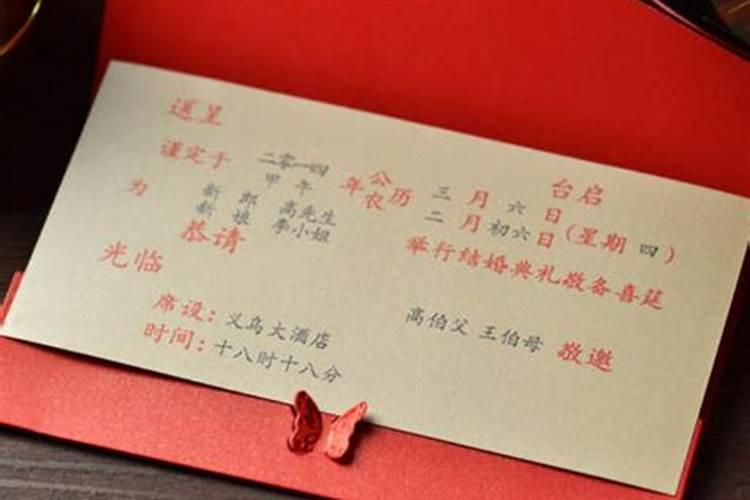 送呈 台启
谨定于 二零一四 年 公 历 三 月 六 日 (星期 四)
甲午 农 二 月 初六 日
为 新郎 高先生 举行结婚典礼敬备喜筵
新娘 李小姐
恭请
光临
席设：义乌大酒店 高伯父 王伯母 敬邀
时间：十八时十八分